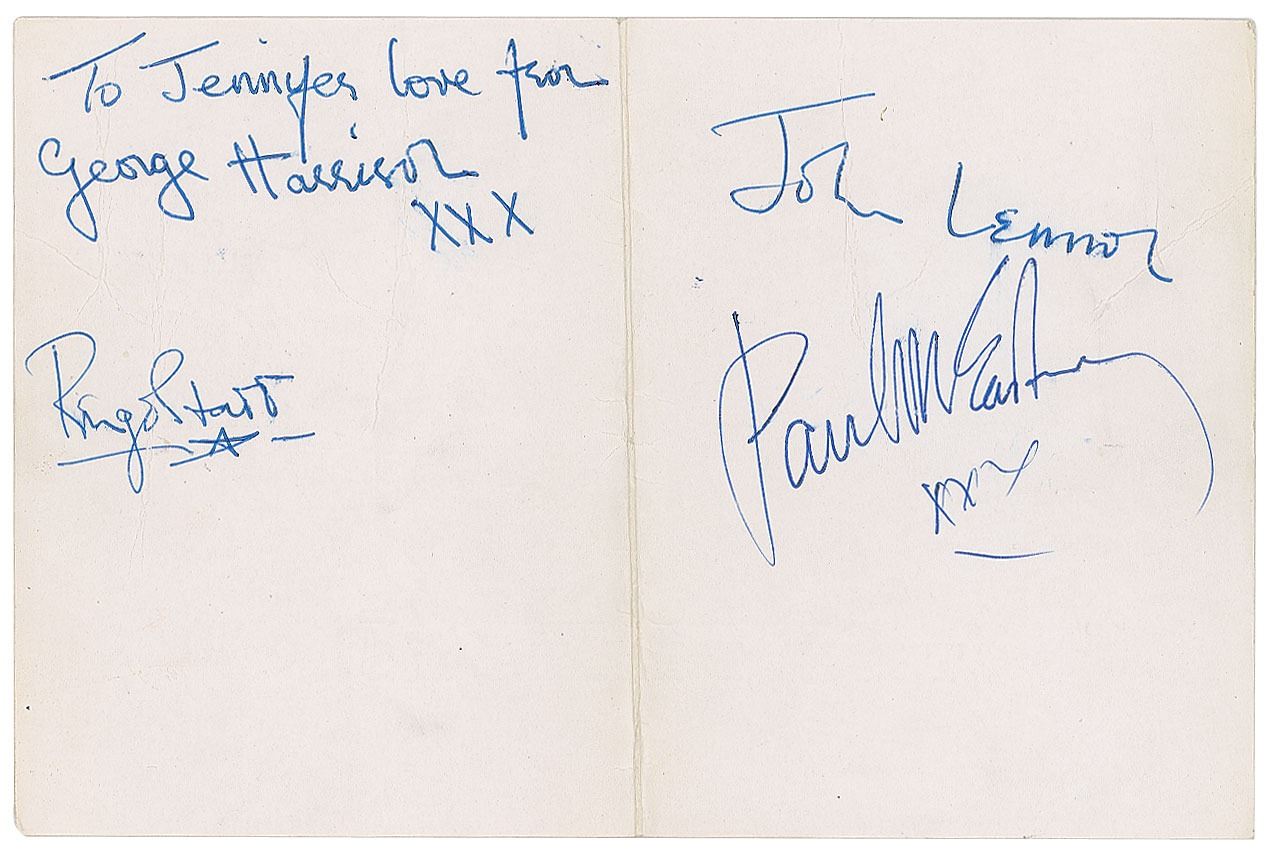 To Jennifer love from
George Harrison
XXX
Ringo Starr
John Lennon
Paul McCartney
xxx